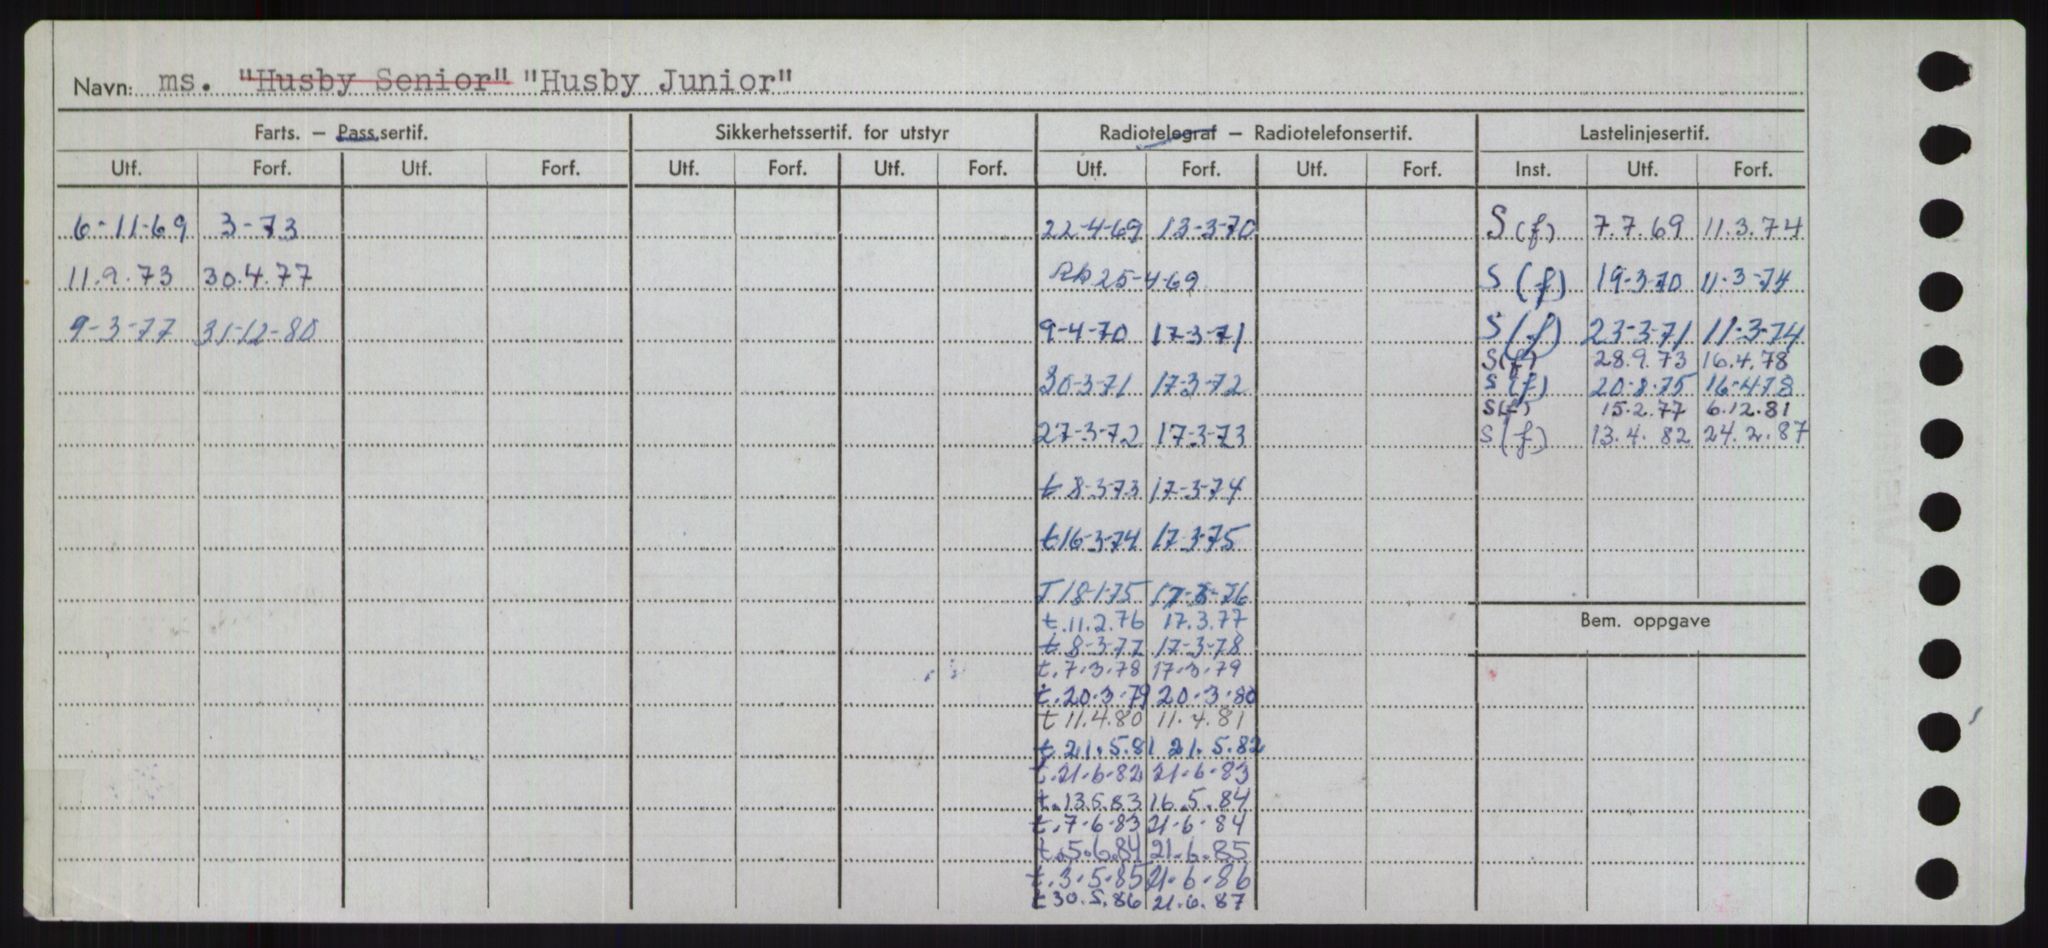 Navn: ms. "Husby Senior" "Husby Junior"
Farts. — Pass.sertif. Sikkerhetssertif. for utstyr Radiotelegraf — Radiotelefonsertif. Lastelinjesertif.
Utf. Forf. Utf. Forf. Utf. Forf. Utf. Forf. Utf. Forf. Utf. Forf. Inst. Utf. Forf.
6-11-69 3-73 22-4-69 13-3-70 S(f) 7.7.69 11.3.74
11.9.73 30.4.77 25-4-69 S(f) 19-3-70 11-3-74
9-3-77 31-12-80 9-4-70 17-3-71 S(f) 23-3-71 11-3-74
S(f) 28.9.73 16.4.78
30-3-71 17-3-72 S(f) 20-8-75 16-4-78
S(f) 15.2.77 6.12.81
27-3-72 17-3-73 S(f) 13.4.82 24.2.87
t 8-3-73 17-3-74
t 16-3-74 17-3-75
T 18-1-75 17-3-76
t. 11.2.76 17.3.77
Bem. oppgave
t 8-3-77 17-3-78
t. 7.3.78 17.3.79
t. 20.3.79 20.3.80
t 11.4.80 11.4.81
t. 21.5.81 21.5.82
t. 21.6.82 21.6.83
t. 13.5.83 16.5.84
t. 7.6.83 21.6.84
t. 5.6.84 21.6.85
t. 3.5.85 21.6.86
t 30.5.86 21.6.87